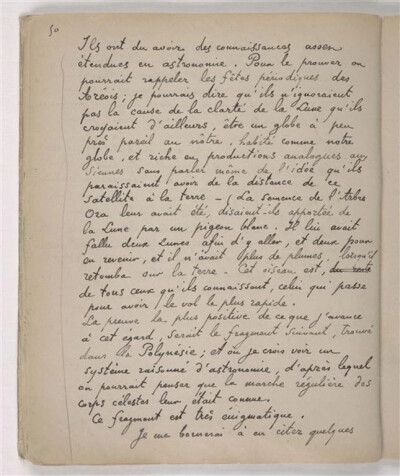 50
Ils ont du avoir des connaissances assez
étendues en astronomie. Pour le prouver on
pourrait rappeler les fêtes périodiques des
Aréois; je pourrais dire qu'ils n'ignoraient
pas la cause de la clarté de la Lune qu'ils
croyaient d'ailleurs, être un globe à peu
près pareil au nôtre, habité comme notre
globe, et riche en productions analogues aux
siennes sans parler même de l'idée qu'ils
paraissaient avoir de la distance de ce
satellite à la terre - (La semence de l'Arbre
Ora leur avait été, disaient-ils apportée de
la Lune par un pigeon blanc. Il lui avait
fallu deux Lunes afin d'y aller, et deux pour
en revenir, et il n'avait plus de plumes, lorsqu'il
retomba sur la terre. Cet oiseau est, du reste
de tous ceux qu'ils connaissent, celui qui passe
pour avoir le vol le plus rapide.
La preuve la plus positive de ce que j'avance
à cet égard, serait le fragment suivant, trouvé
dans la Polynésie; et où je crois voir un
système raisonné d'astronomie, d'après lequel
on pourrait penser que la marche régulière des
corps célestes leur était connue.
Ce fragment est très énigmatique.
Je me bornerai à en citer quelques